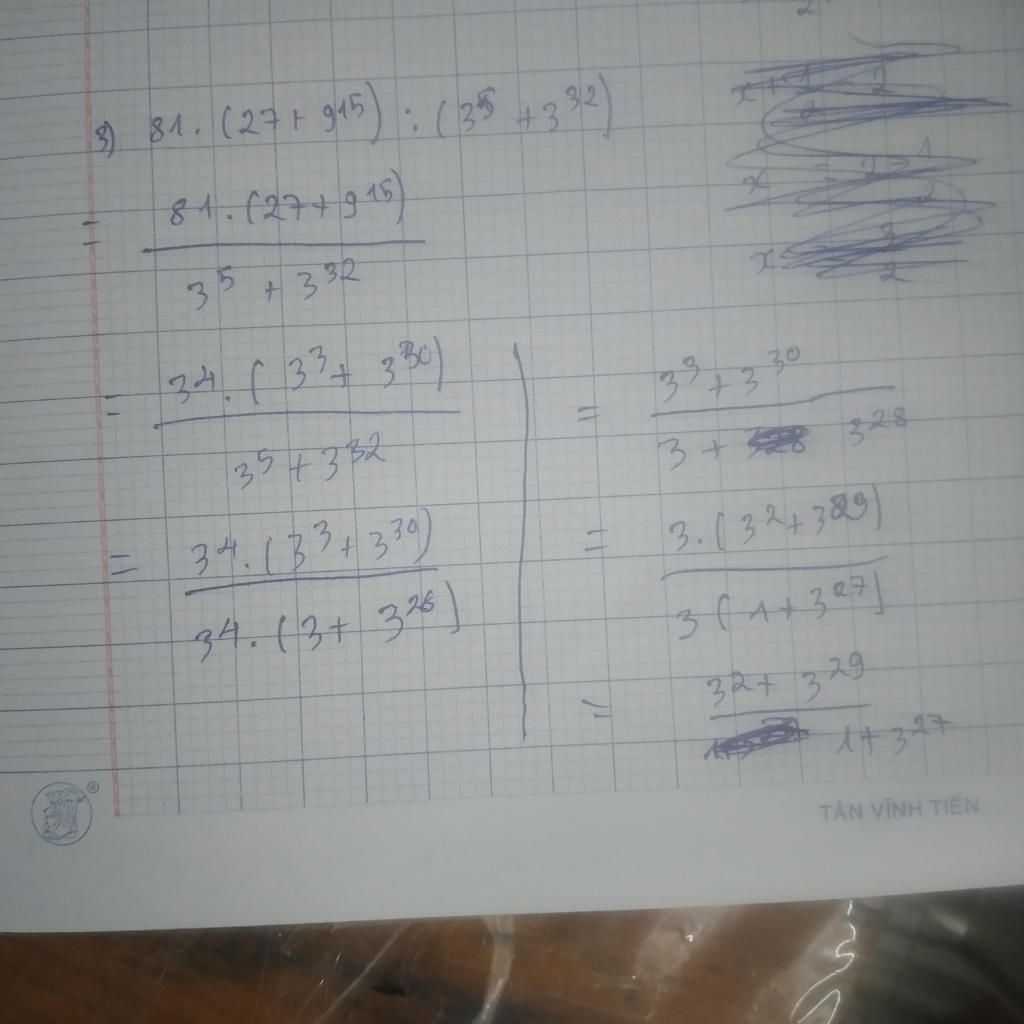 3) 81.(27+9¹⁵):(3⁵+3³²)
= 81.(27+9¹⁵)
3⁵ + 3³²
= 3⁴.(3³+3³⁰)
3⁵+3³²
= 3⁴.(3³+3³⁰)
3⁴.(3+3²⁸)
= 3³+3³⁰
3 + 3²⁸
= 3.(3²+3²⁹)
3(1+3²⁷)
= 3²+3²⁹
1+3²⁷
TÂN VĨNH TIẾN